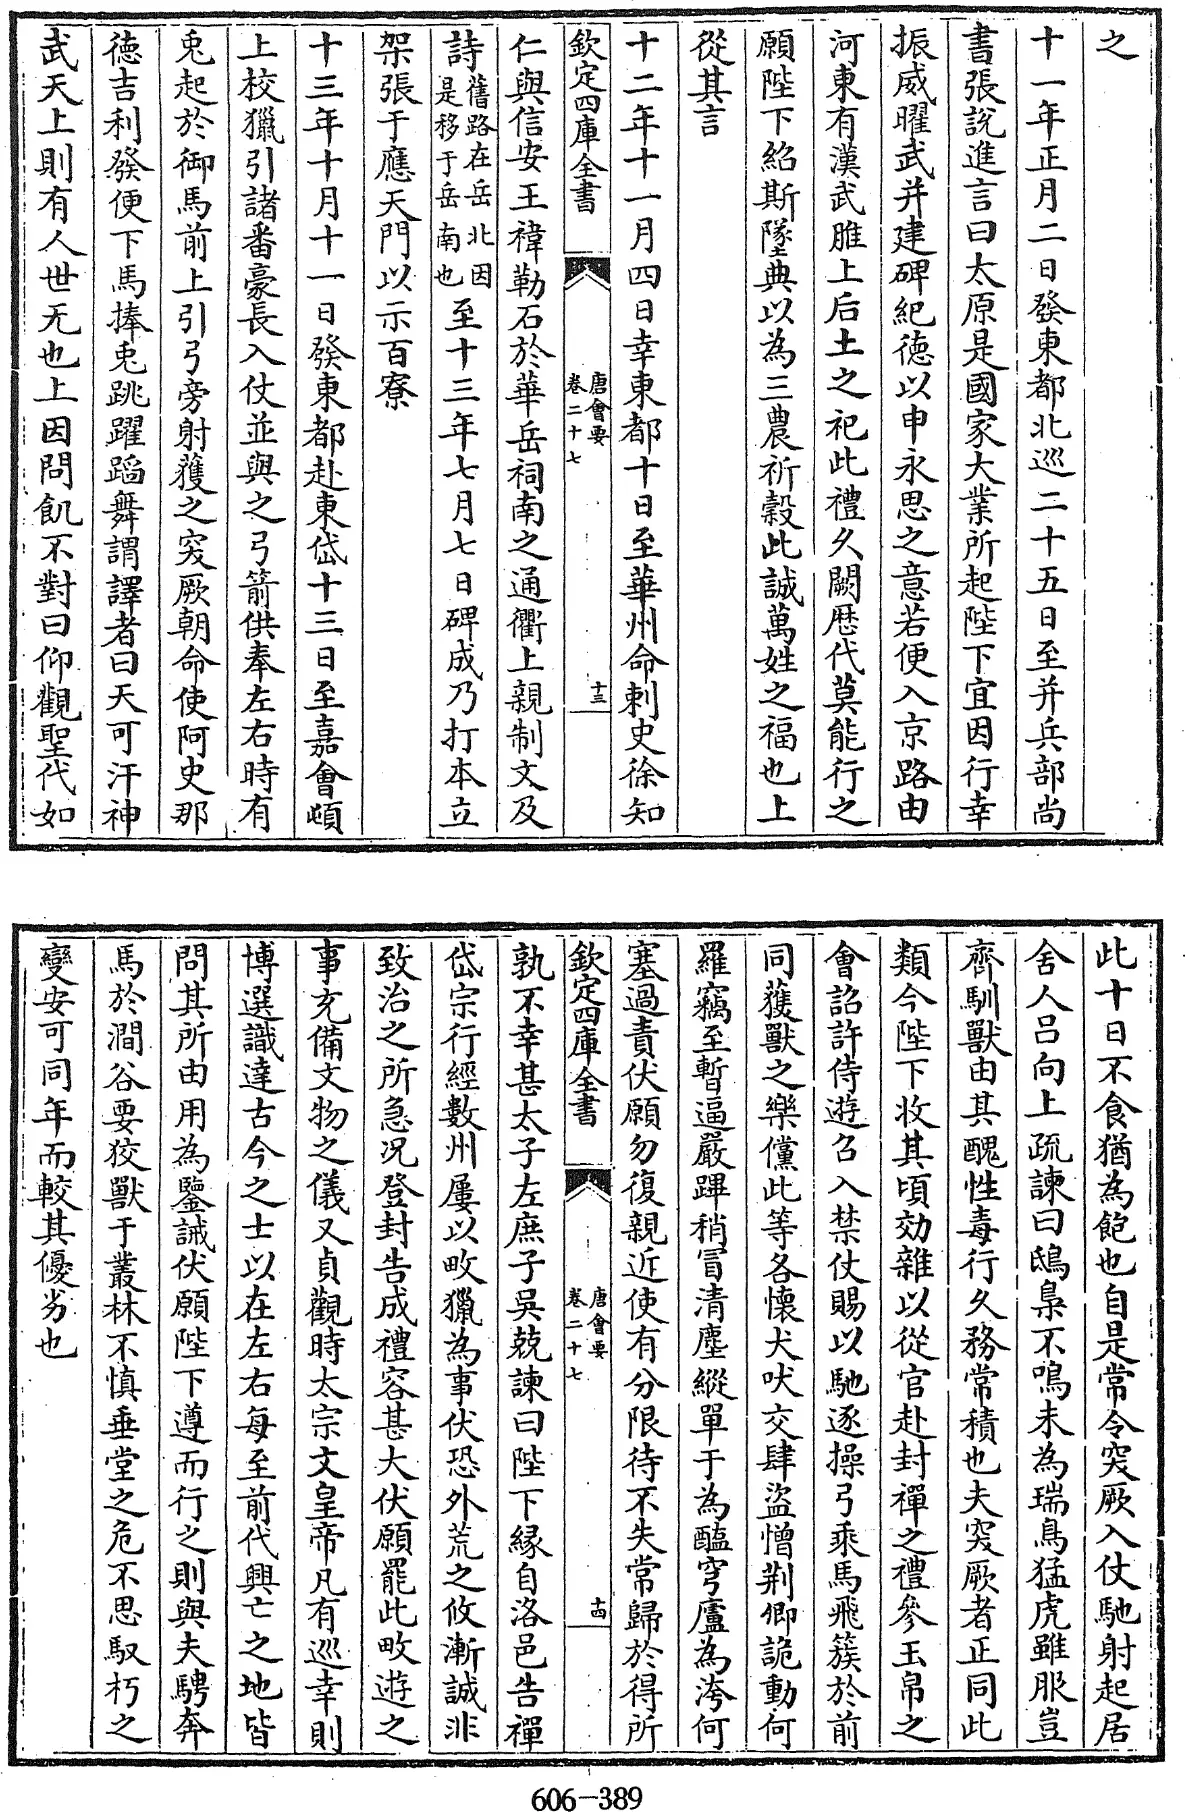 之
十一年正月二日發東都北巡二十五日至并兵部尚
書張說進言曰太原是國家大業所起陛下宜因行幸
振威曜武并建碑紀德以申永思之意若便入京路由
河東有漢武脽上后土之祀此禮久闕歷代莫能行之
願陛下紹斯墜典以為三農祈穀此誠萬姓之福也上
從其言
十二年十一月四日幸東都十日至華州命刺史徐知
欽定四庫全書
唐會要
卷二十七
十三
仁與信安王禕勒石於華岳祠南之通衢上親制文及
詩舊路在岳北因是移于岳南也至十三年七月七日碑成乃打本立
架張于應天門以示百寮
十三年十月十一日發東都赴東岱十三日至嘉會頓
上校獵引諸番豪長入仗並與之弓箭供奉左右時有
兎起於御馬前上引弓旁射獲之突厥朝命使阿史那
德吉利發便下馬捧兎跳躍蹈舞謂譯者曰天可汗神
武天上則有人世无也上因問飢不對曰仰觀聖代如
此十日不食猶為飽也自是常令突厥入仗馳射起居
舍人呂向上疏諫曰鴟梟不鳴未為瑞鳥猛虎雖服豈
齊馴獸由其醜性毒行久務常積也夫突厥者正同此
類今陛下收其頃効雜以從官赴封禪之禮參玉帛之
會詔許侍遊召入禁仗賜以馳逐操弓乘馬飛簇於前
同獲獸之樂儻此等各懷犬吠交肆盜憎荆卿詭動何
羅竊至暫逼嚴蹕稍冒清塵縱單于為醢穹廬為洿何
塞過責伏願勿復親近使有分限待不失常歸於得所
欽定四庫全書
唐會要
卷二十七
十四
孰不幸甚太子左庶子吳兢諫曰陛下緣自洛邑告禪
岱宗行經數州屢以畋獵為事伏恐外荒之攸漸誠非
致治之所急况登封告成禮容甚大伏願罷此畋遊之
事充備文物之儀又貞觀時太宗文皇帝凡有巡幸則
博選識達古今之士以在左右每至前代興亡之地皆
問其所由用為鑒誡伏願陛下遵而行之則與夫騁奔
馬於澗谷要狡獸于叢林不慎垂堂之危不思馭朽之
變安可同年而較其優劣也
606-389